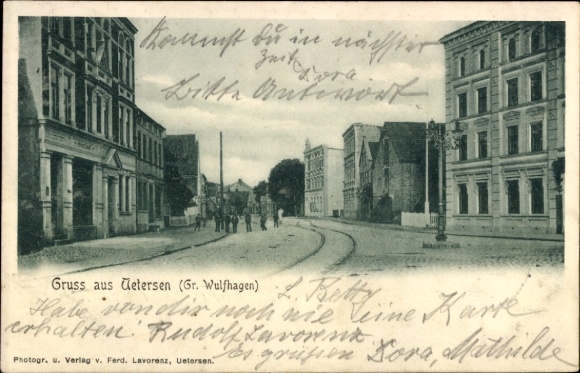 Kommst Du in nächster
Zeit
Dora
Bitte Antwort
Gruss aus Uetersen (Gr. Wulfhagen)
L. Ketty
Habe von dir noch nie eine Karte
erhalten. Rudolf Lavorenz
Es grüßen Dora, Mathilde
Photogr. u. Verlag v. Ferd. Lavorenz, Uetersen.